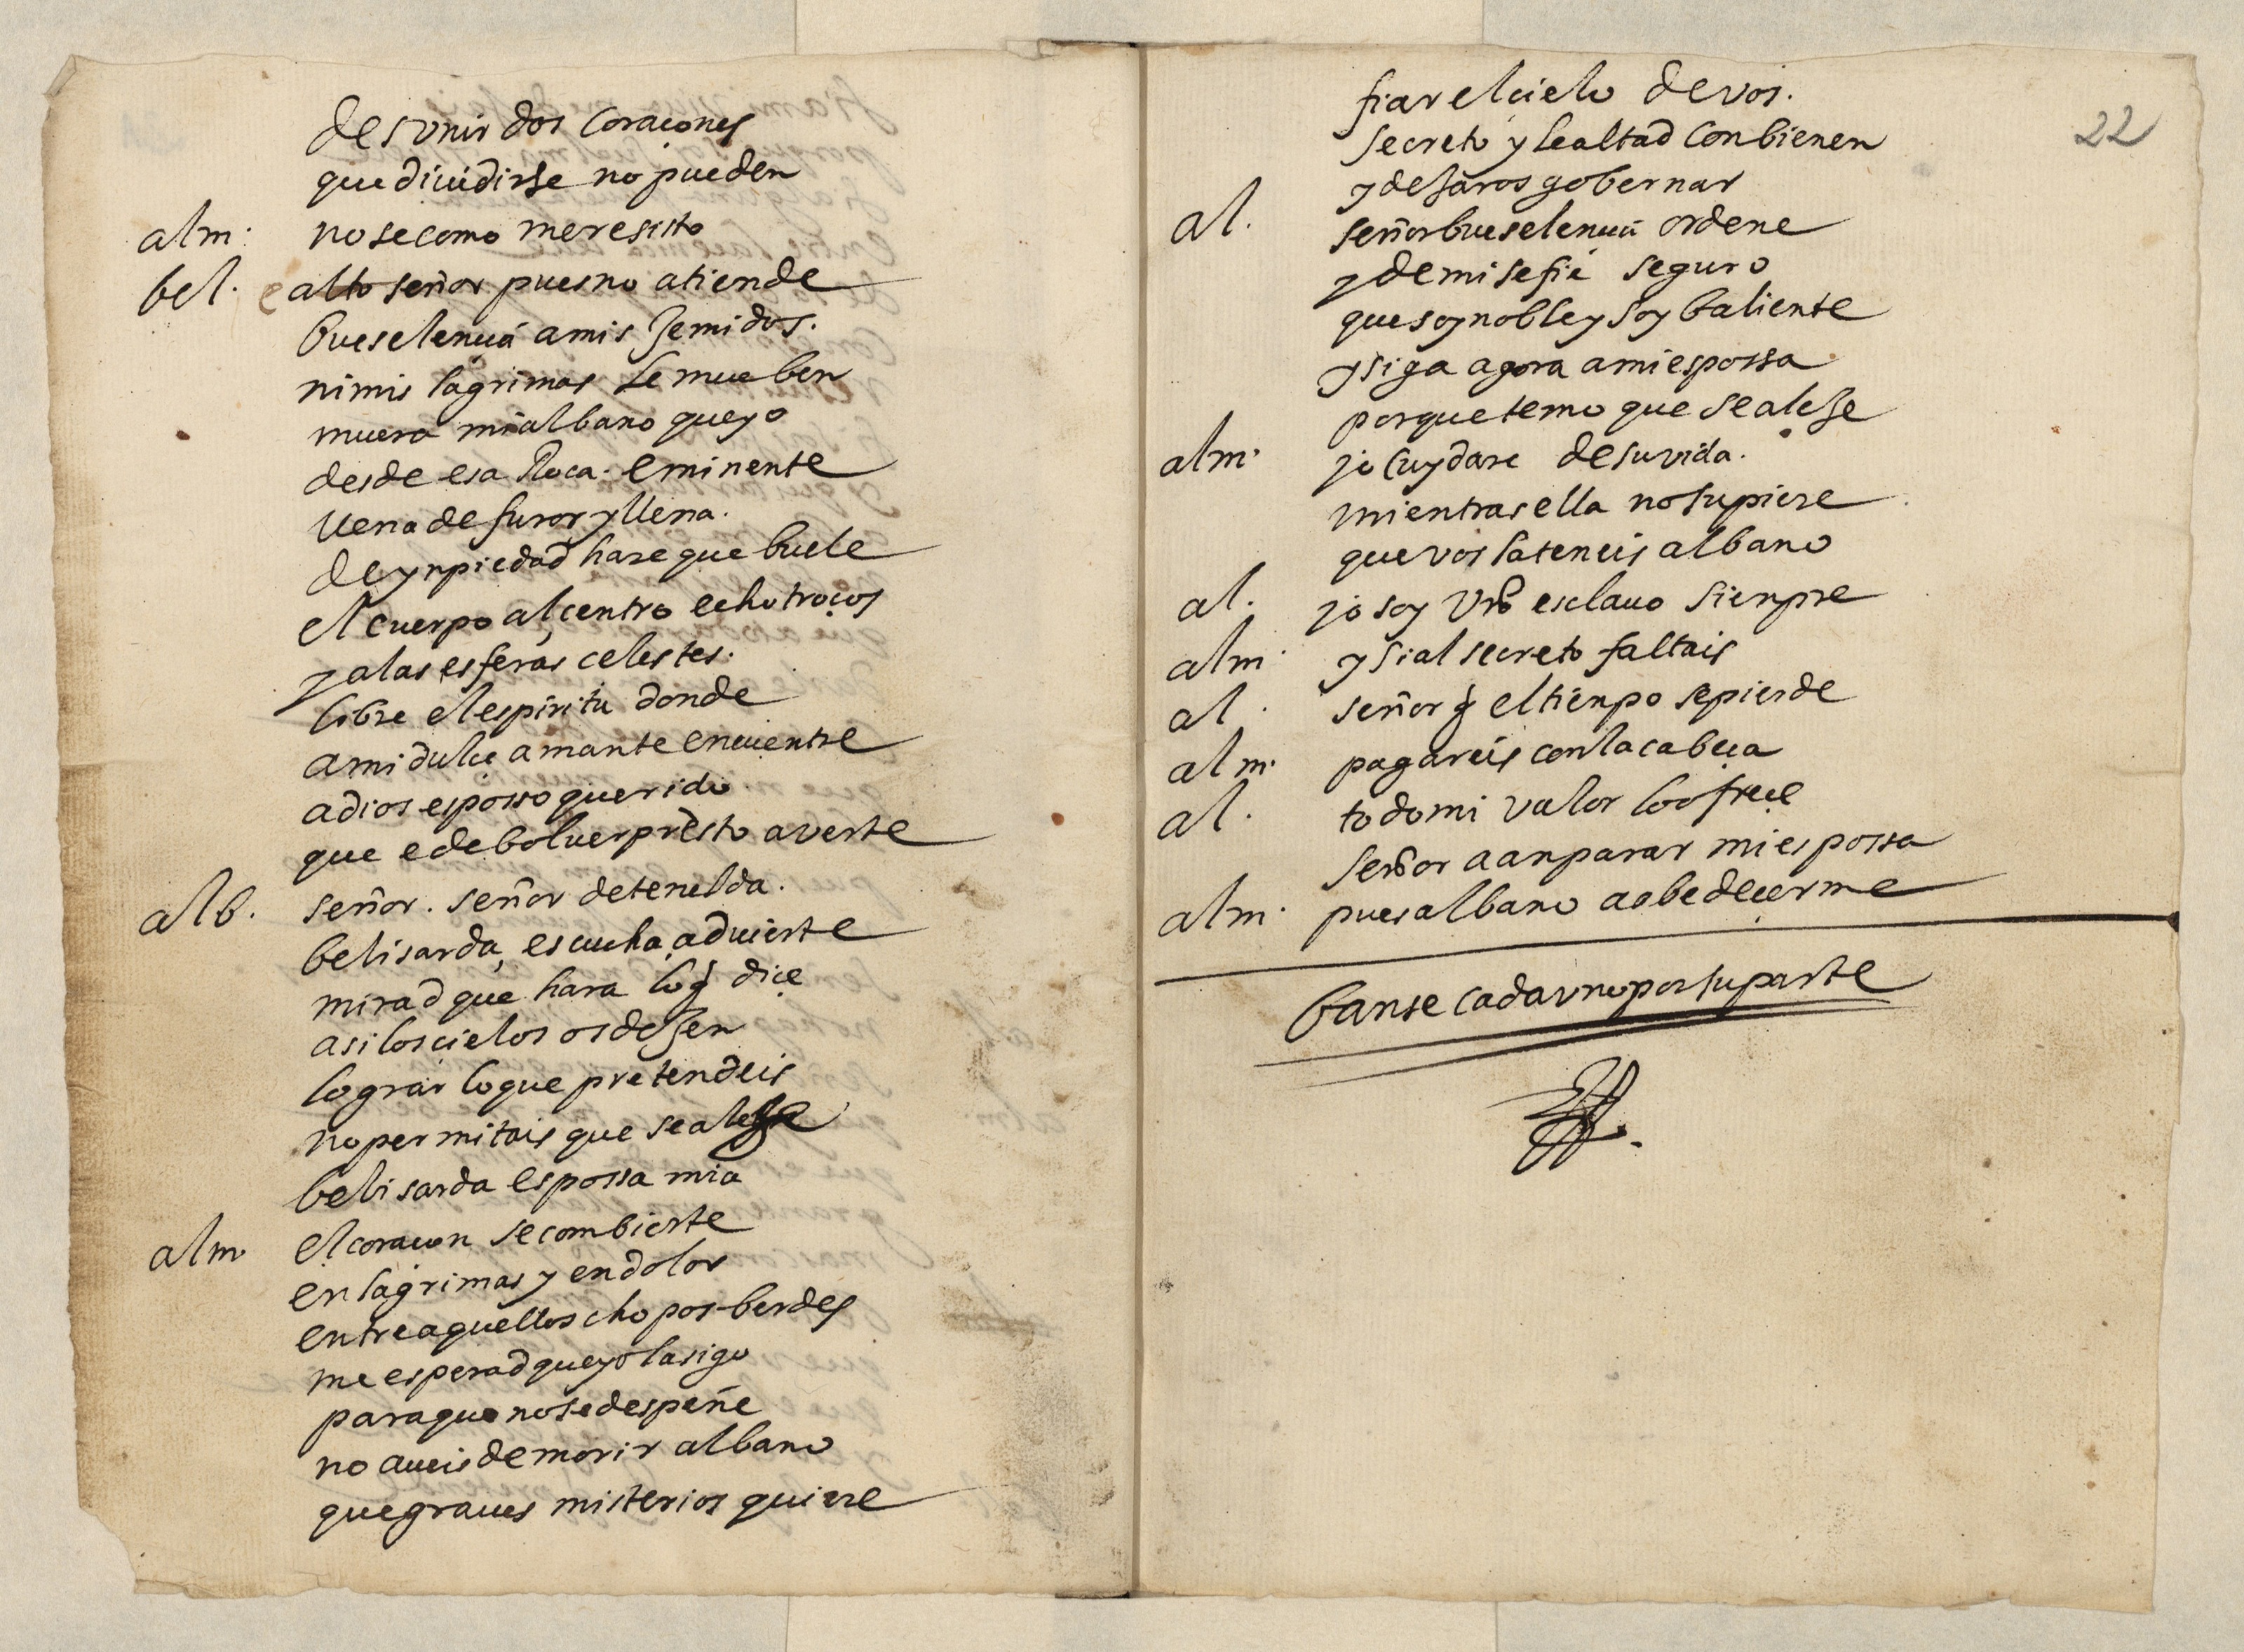 desunir dos coraçones
que diuidirse no pueden
alm. no se como me resisto
bel. alto señor pues no atiende
bueselençia a mis jemidos.
ni mis lagrimas le mueben
muera mi albano que yo
desde esa Roca eminente
llena de furor y llena.
de ynpiedad hare que buele
el cuerpo al çentro echo troços
y a las esferas celestes.
libre el espiritu donde
a mi dulçe amante encuentre
a dios esposso querido
que e de boluer presto a verte
alb. señor. señor detenelda.
belisarda, escucha, aduierte
mirad que hara lo q̃ diçe
asi los cielos os dejen
lograr lo que pretendeis
no permitais que se aleje
belisarda espossa mia
alm. el coraçon se combierte
en lagrimas y en dolor
entre aquellos chopos berdes
me esperad que yo la sigo
para que no se despeñe
no aueis de morir albano
que graues misterios quiere
22
fiar el cielo de vos.
secreto y lealtad conbienen
y dejaros gobernar
al. señor bueselençia ordene
y de mi se fie seguro
que soy noble y soy baliente
y siga agora a mi espossa
porque temo que se aleje
alm. yo cuydare de su vida.
mientras ella no supiere
que vos la teneis albano
al. yo soy vrõ esclauo sienpre
alm. y si al secreto faltais
al. señor q̃ el tienpo se pierde
alm. pagareis con la cabeça
al. todo mi valor lo ofreçe
señor a anparar mi espossa
alm. pues albano a obedeçerme
banse cada vno por su parte